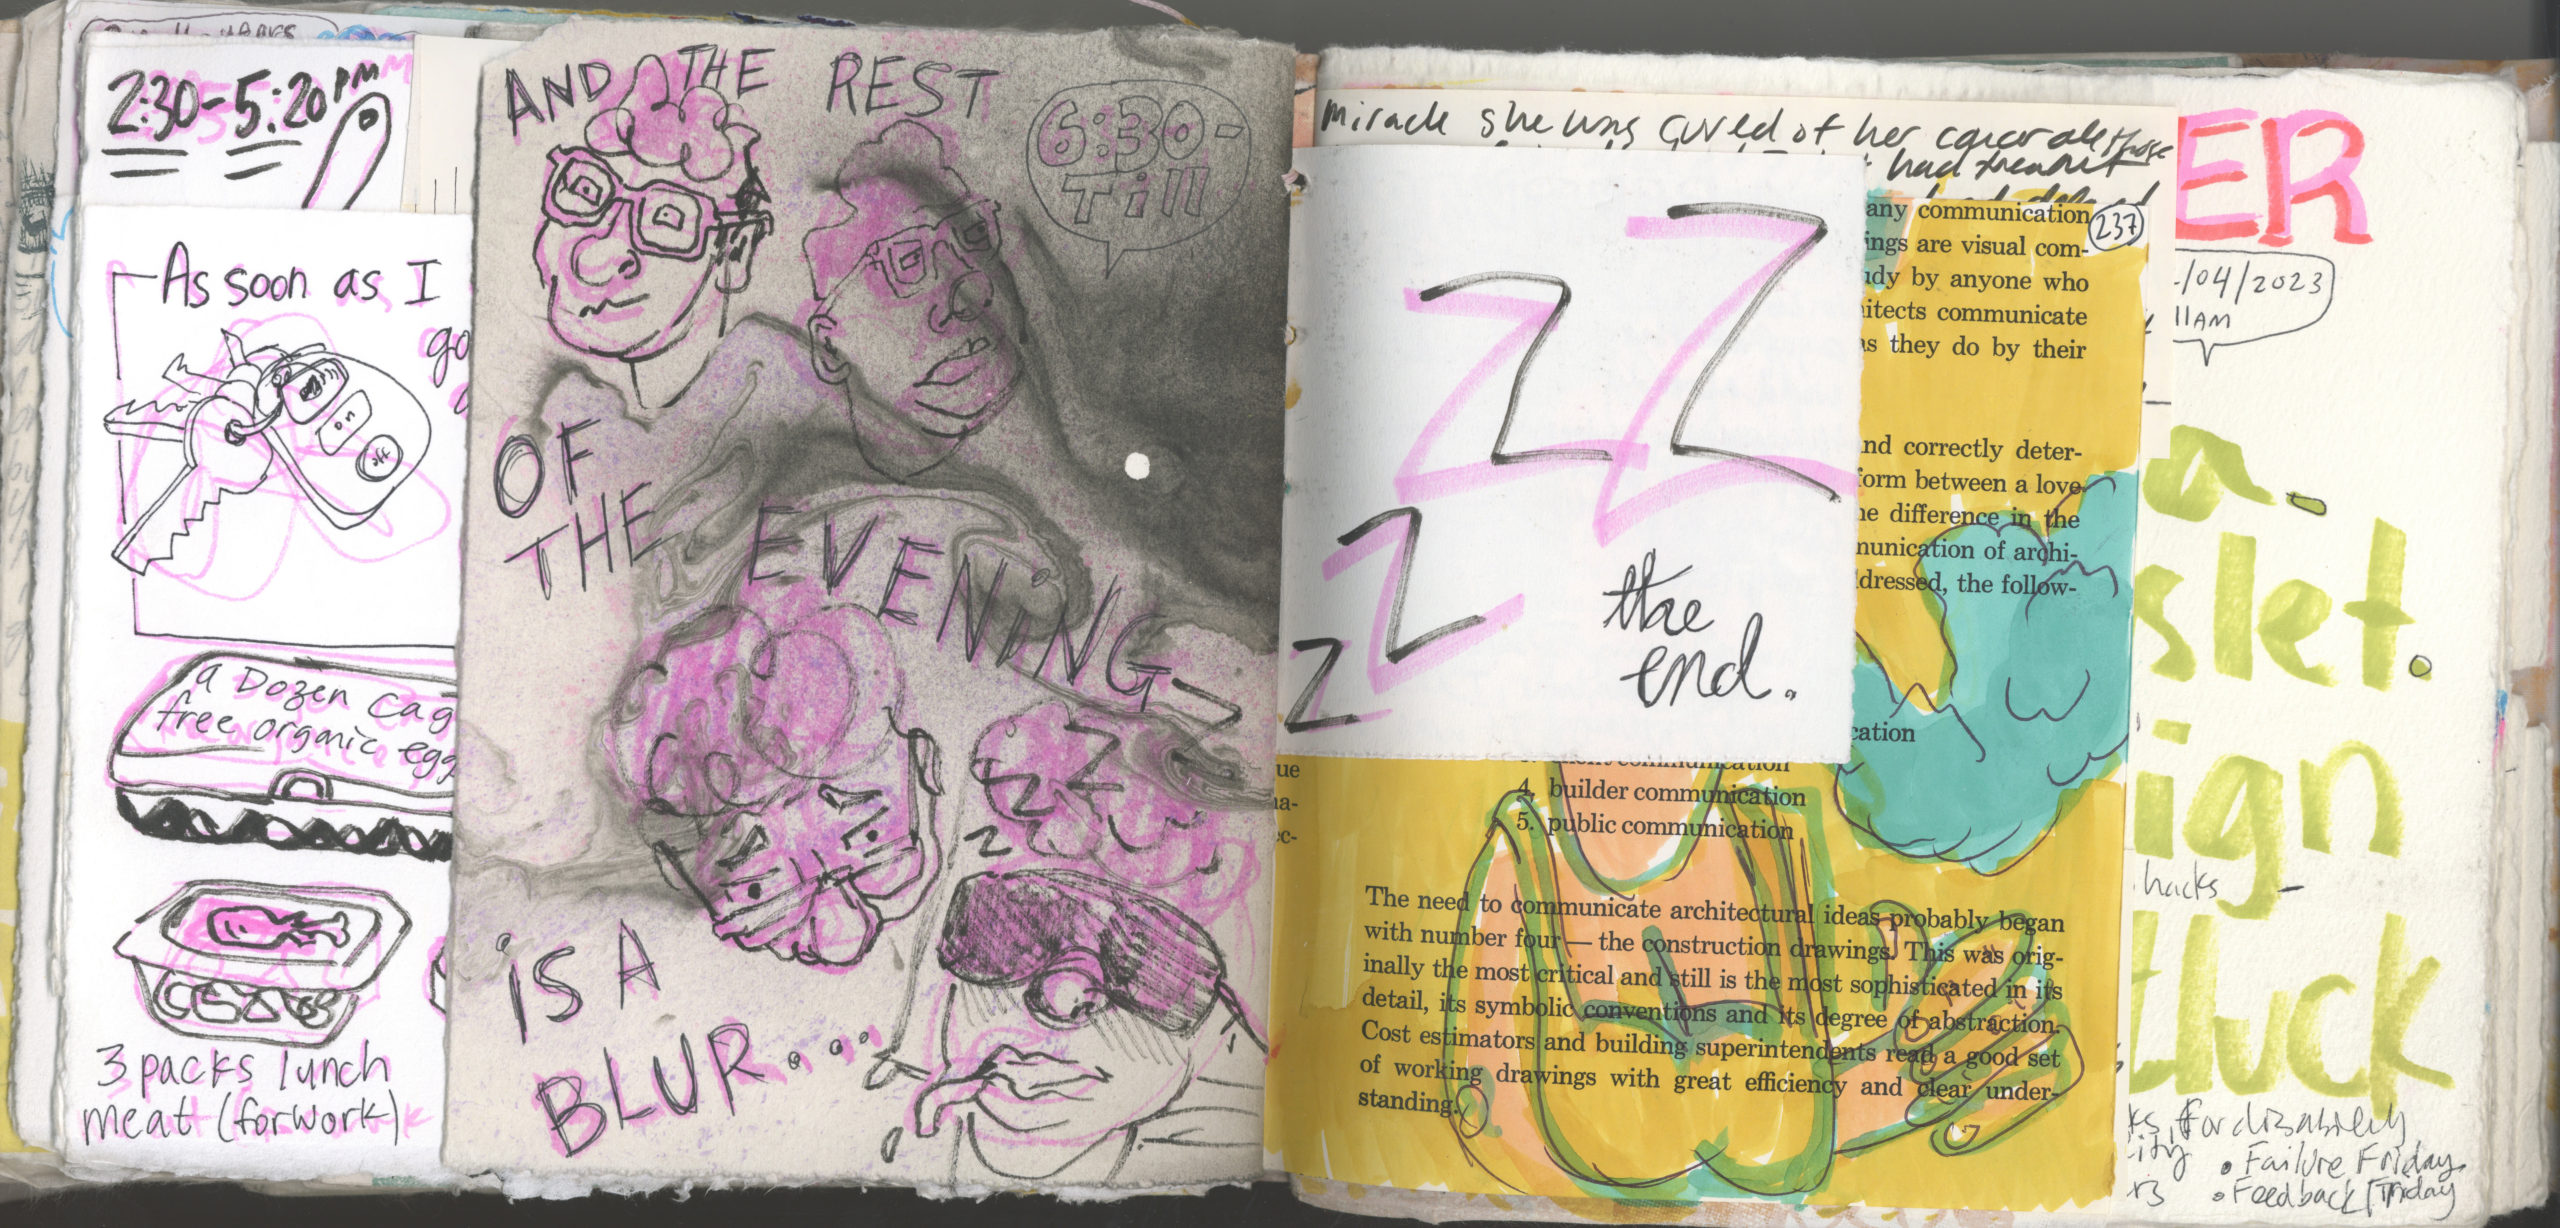 2:30-5:20 PM
As soon as I
go
a Dozen Cag
free organic egg
on
off
3 packs lunch
meat (for work)
AND THE REST
6:30-
Till
OF
THE
EVENING-
IS A
BLUR....
Z Z Z
Z Z Z Z
the
end.
Miracle she was cured of her
had
any communication
237
ings are visual com-
udy by anyone who
itects communicate
as they do by their
nd correctly deter-
form between a love
he difference in the
munication of archi-
ddressed, the follow-
cation
communication
4. builder communication
5. public communication
ue
na-
ec-
The need to communicate architectural ideas probably began
with number four — the construction drawings. This was orig-
inally the most critical and still is the most sophisticated in its
detail, its symbolic conventions and its degree of abstraction.
Cost estimators and building superintendents read a good set
of working drawings with great efficiency and clear under-
standing.
ER
/04/2023
11AM
a.
slet.
ign
hacks -
tluck
ks, for disability
ity
• Failure Friday.
rs
• Feedback Friday